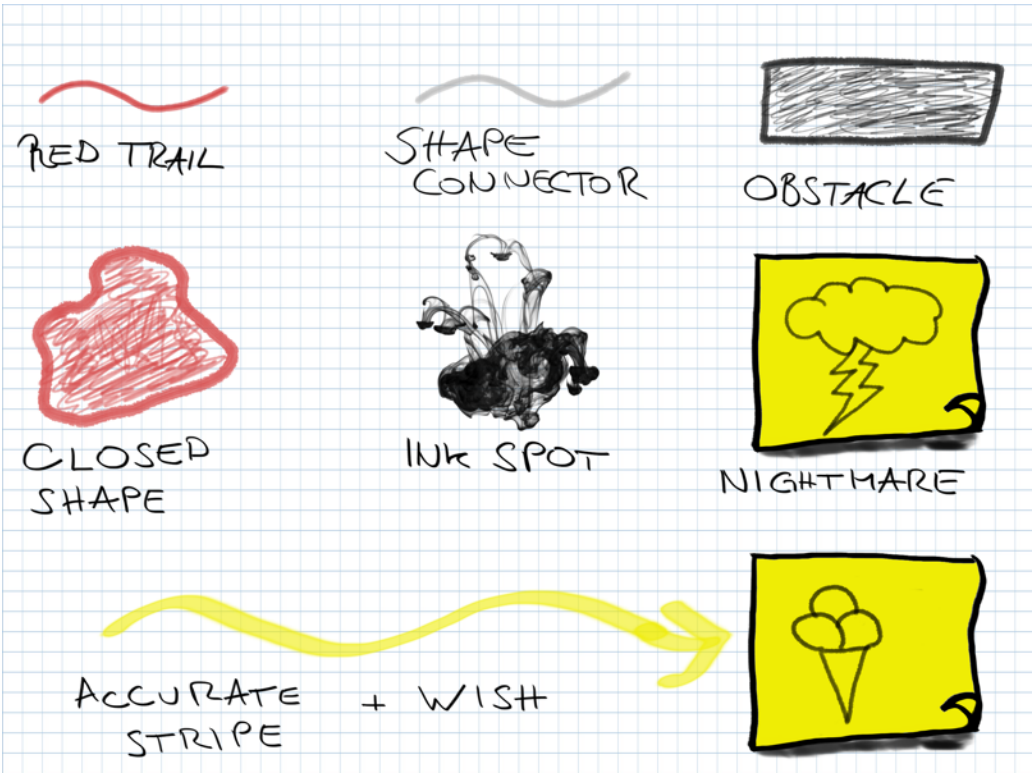 RED TRAIL
SHAPE
CONNECTOR
OBSTACLE
CLOSED
SHAPE
INK SPOT
NIGHTMARE
ACCURATE
STRIPE
+ WISH